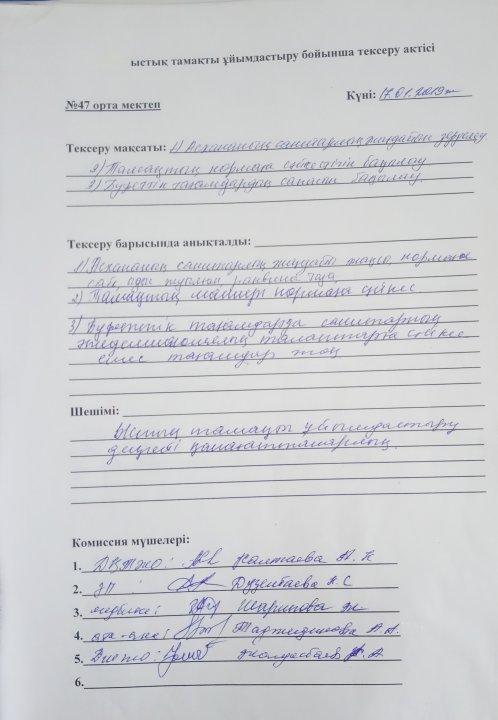 ыстық тамақты ұйымдастыру бойынша тексеру актісі
Күні: 17.01.2019ж
№47 орта мектеп
Тексеру мақсаты: 1) Асхананың санитарлық жағдайын зерделеу
2) Тамақтың нормаға сәйкестігін бақылау
3) Буфеттің тағамдардың сапасын бақылау.
Тексеру барысында анықталды:
1) Асхананың санитарлық жағдайы жақсы, нормаға
сай,
2) Тамақтың мөлшері нормаға сәйкес
3) Буфеттік тағамдарда санитарлық
эпидемиологиялық талаптарға сәйкес
емес тағамдар жоқ
Шешімі:
Ыстық тамақты ұйымдастыру
деңгейі қанағаттанарлық.
Комиссия мүшелері:
1. ДВТЖО: Калтаева
2. ЗП : Дузенбаева А С
3. медбике: Шарипова
4. ата-ана: А. А.
5.
6.